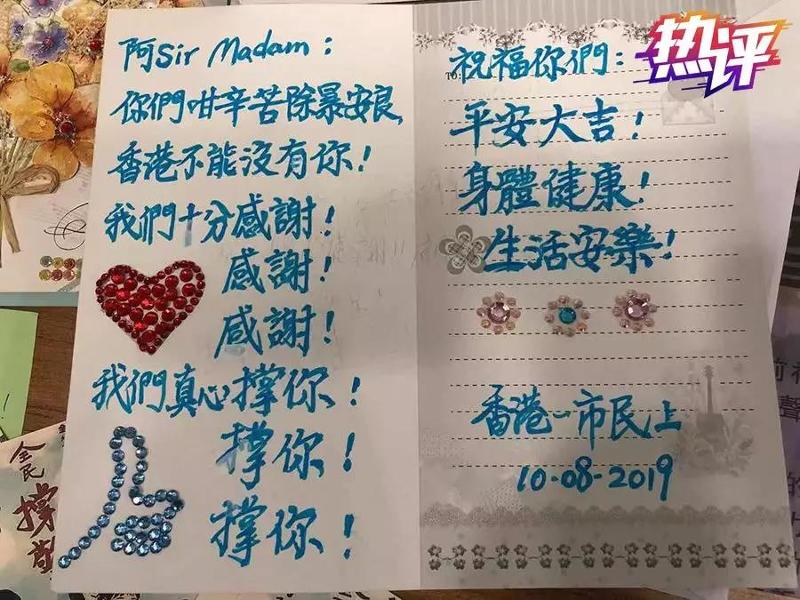 阿Sir Madam：
你們咁辛苦除暴安良，
香港不能沒有你！
我們十分感謝！
感謝！
感謝！
我們真心撐你！
撐你！
撐你！
热评
TO:
祝福你們：
平安大吉！
身體健康！
生活安樂！
香港一市民上
10-08-2019
全民
撐